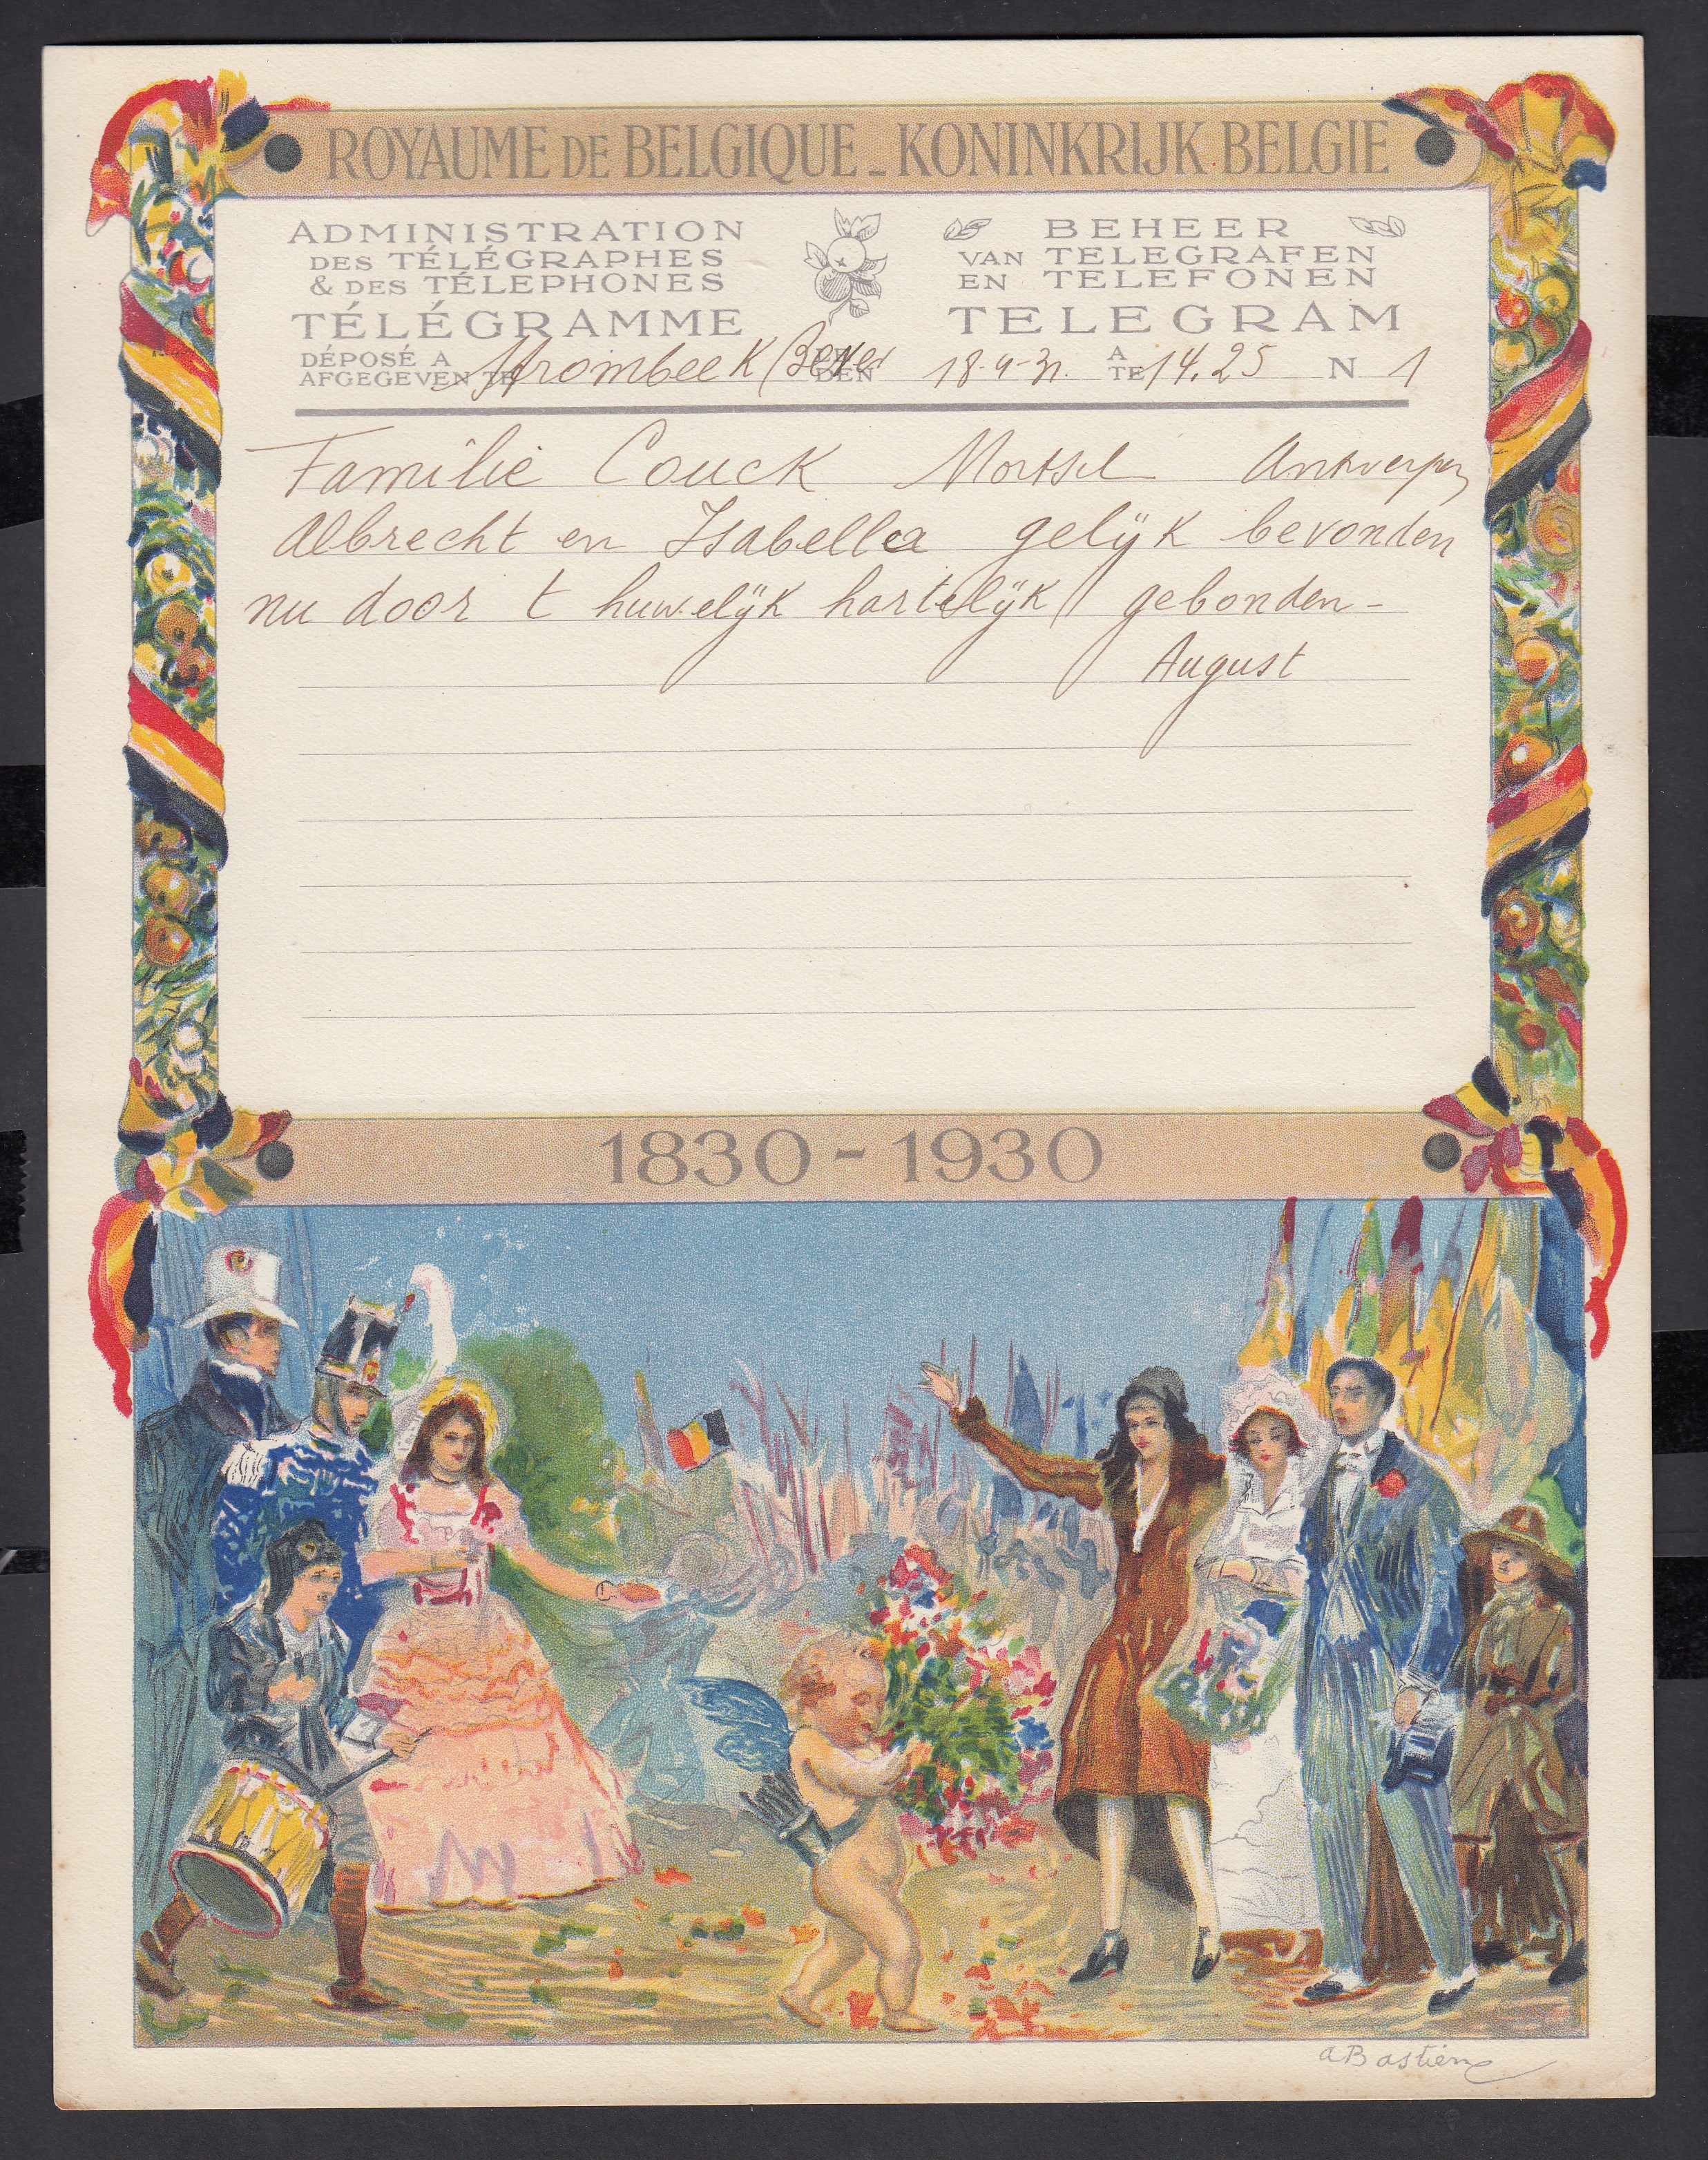 ROYAUME DE BELGIQUE - KONINKRIJK BELGIE
ADMINISTRATION
DES TÉLÉGRAPHES
& DES TÉLÉPHONES
TÉLÉGRAMME
BEHEER
VAN TELEGRAFEN
EN TELEFONEN
TELEGRAM
DÉPOSÉ A
AFGEGEVEN TE Strombeek (Bever LE DEN 18-9-31. A TE 14.25 N 1
Familie Couck Mortsel Antwerpen
Albrecht en Isabella gelijk bevonden
nu door t huwelijk hartelijk gebonden -
August
1830 - 1930
ABastien